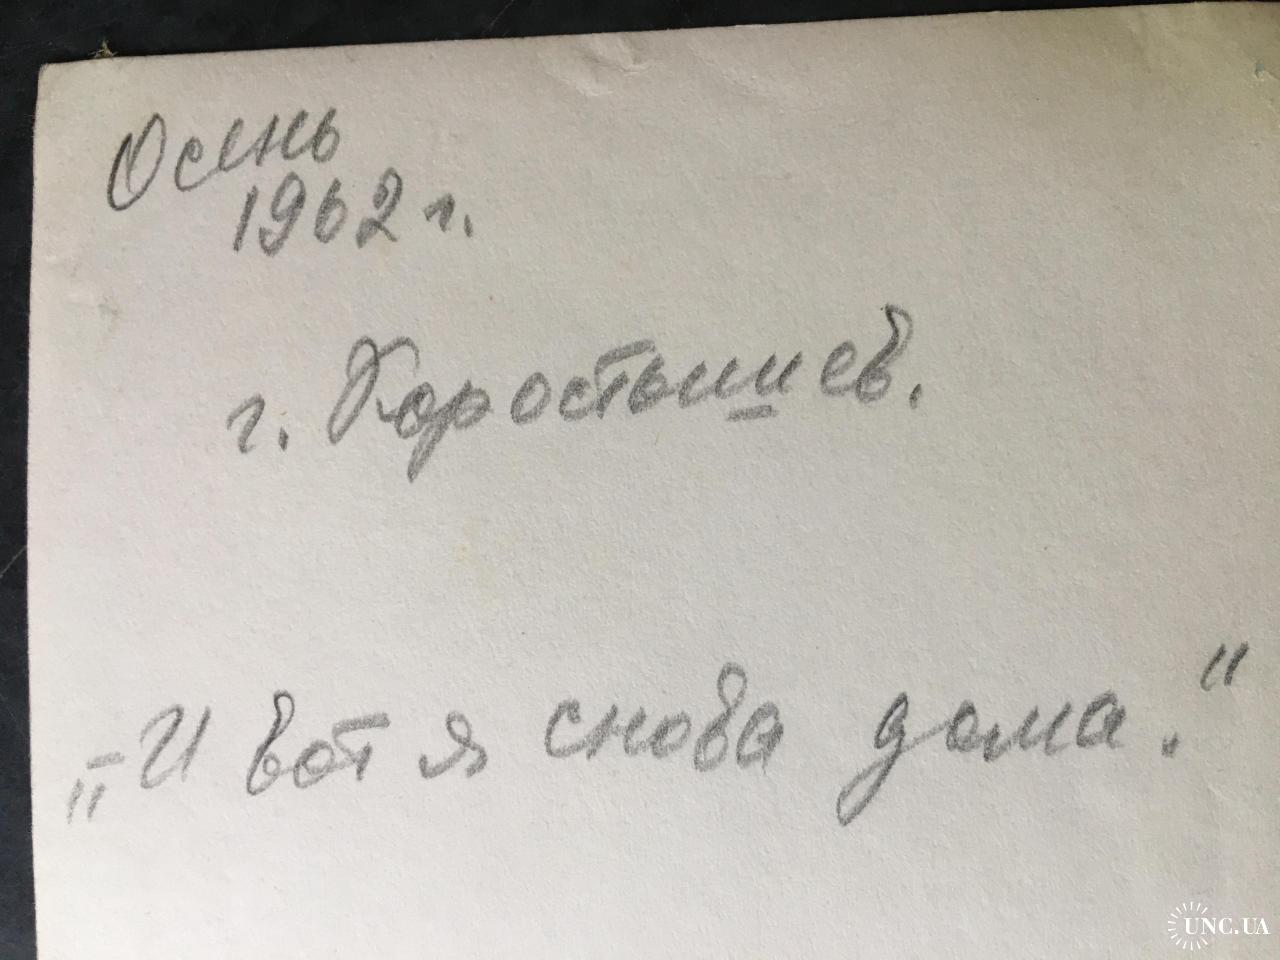 Осень
1962 г.
г. Коростышев.
„И вот я снова дома."
UNC.UA